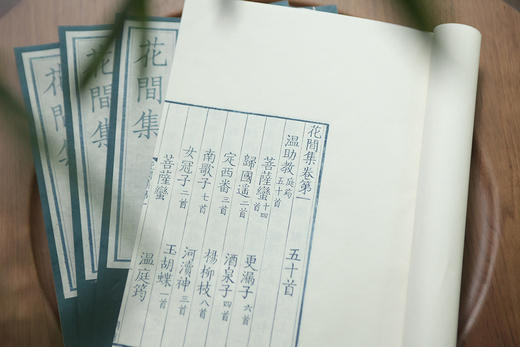 花間集
花間集
花間集
花間集卷第一
溫助教庭筠五十首 五十首
菩薩蠻十四首
歸國遥二首 更漏子六首
定西番三首 酒泉子四首
南歌子七首 楊柳枝八首
女冠子二首 河瀆神三首
菩薩蠻 玉胡蝶一首
溫庭筠